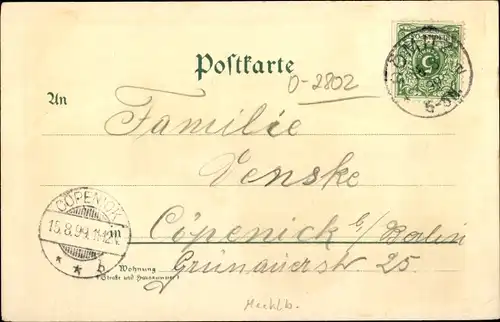 Postkarte
O-2802
An
Familie
Venske
Cöpenick b/Berlin
Grünauerstr 25
CÖPENICK
15.8.99.11-12V.
* * b
in
Wohnung
(Straße und Hausnummer)
DÖMITZ
5-6N
Mecklb.